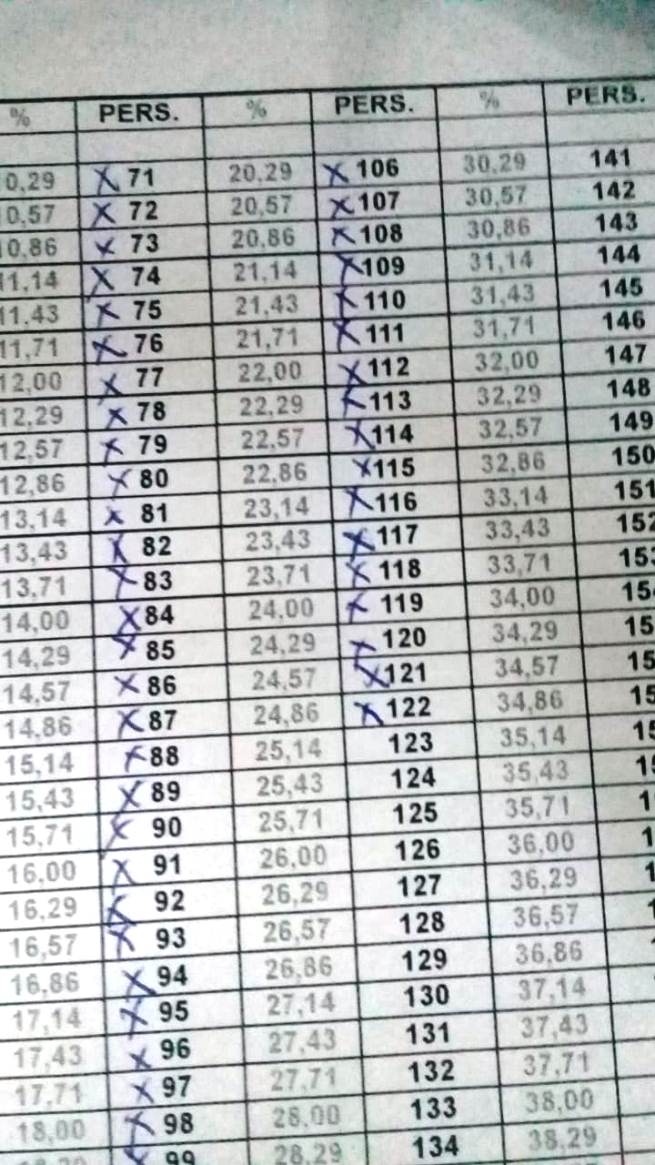 % PERS. % PERS. % PERS.
0,29 X 71 20,29 X 106 30,29 141
0,57 X 72 20,57 X 107 30,57 142
0,86 X 73 20,86 X 108 30,86 143
11,14 X 74 21,14 X 109 31,14 144
11,43 X 75 21,43 X 110 31,43 145
11,71 X 76 21,71 X 111 31,71 146
12,00 X 77 22,00 X 112 32,00 147
12,29 X 78 22,29 X 113 32,29 148
12,57 X 79 22,57 X 114 32,57 149
12,86 X 80 22,86 X 115 32,86 150
13,14 X 81 23,14 X 116 33,14 151
13,43 X 82 23,43 X 117 33,43 152
13,71 X 83 23,71 X 118 33,71 153
14,00 X 84 24,00 X 119 34,00 15
14,29 X 85 24,29 X 120 34,29 15
14,57 X 86 24,57 X 121 34,57 15
14,86 X 87 24,86 X 122 34,86 15
15,14 X 88 25,14 123 35,14 15
15,43 X 89 25,43 124 35,43 15
15,71 X 90 25,71 125 35,71 1
16,00 X 91 26,00 126 36,00 1
16,29 X 92 26,29 127 36,29 1
16,57 X 93 26,57 128 36,57
16,86 X 94 26,86 129 36,86
17,14 X 95 27,14 130 37,14
17,43 X 96 27,43 131 37,43
17,71 X 97 27,71 132 37,71
18,00 X 98 28,00 133 38,00
X 99 28,29 134 38,29